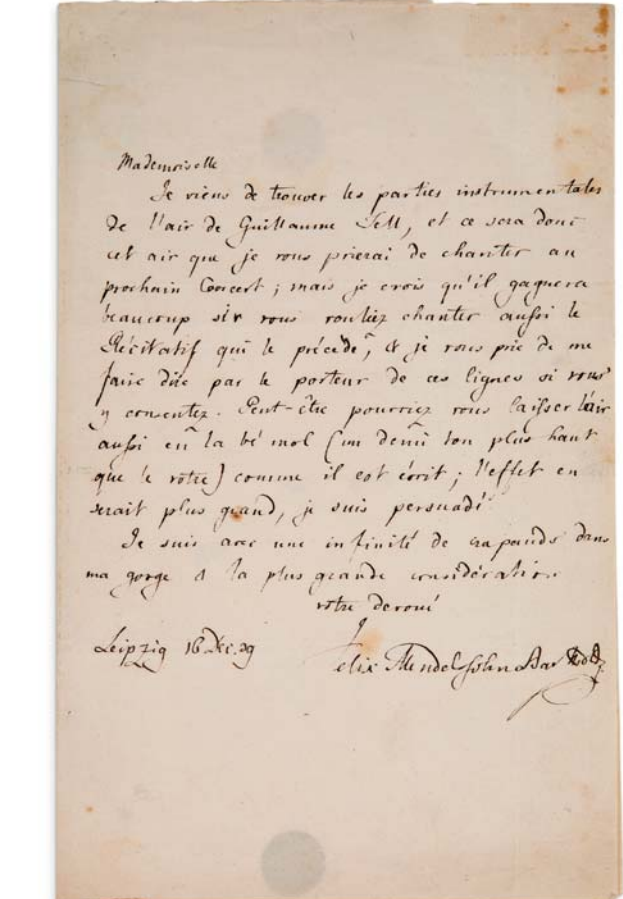 Mademoiselle
Je viens de trouver les parties instrumentales
de l'air de Guillaume Tell, et ce sera donc
cet air que je vous prierai de chanter au
prochain Concert; mais je crois qu'il gagnera
beaucoup si vous vouliez chanter aussi le
Récitatif qui le précède, et je vous prie de me
faire dire par le porteur de ces lignes si vous
y consentez. Peut-être pourriez vous laisser l'air
aussi en la bé mol (un demi ton plus haut
que le vôtre) comme il est écrit; l'effet en
serait plus grand, je suis persuadé
Je suis avec une infinité de crapauds dans
ma gorge & la plus grande considération
votre devoué
Leipzig 16 Dec. 39
Felix Mendelssohn Bartholdy